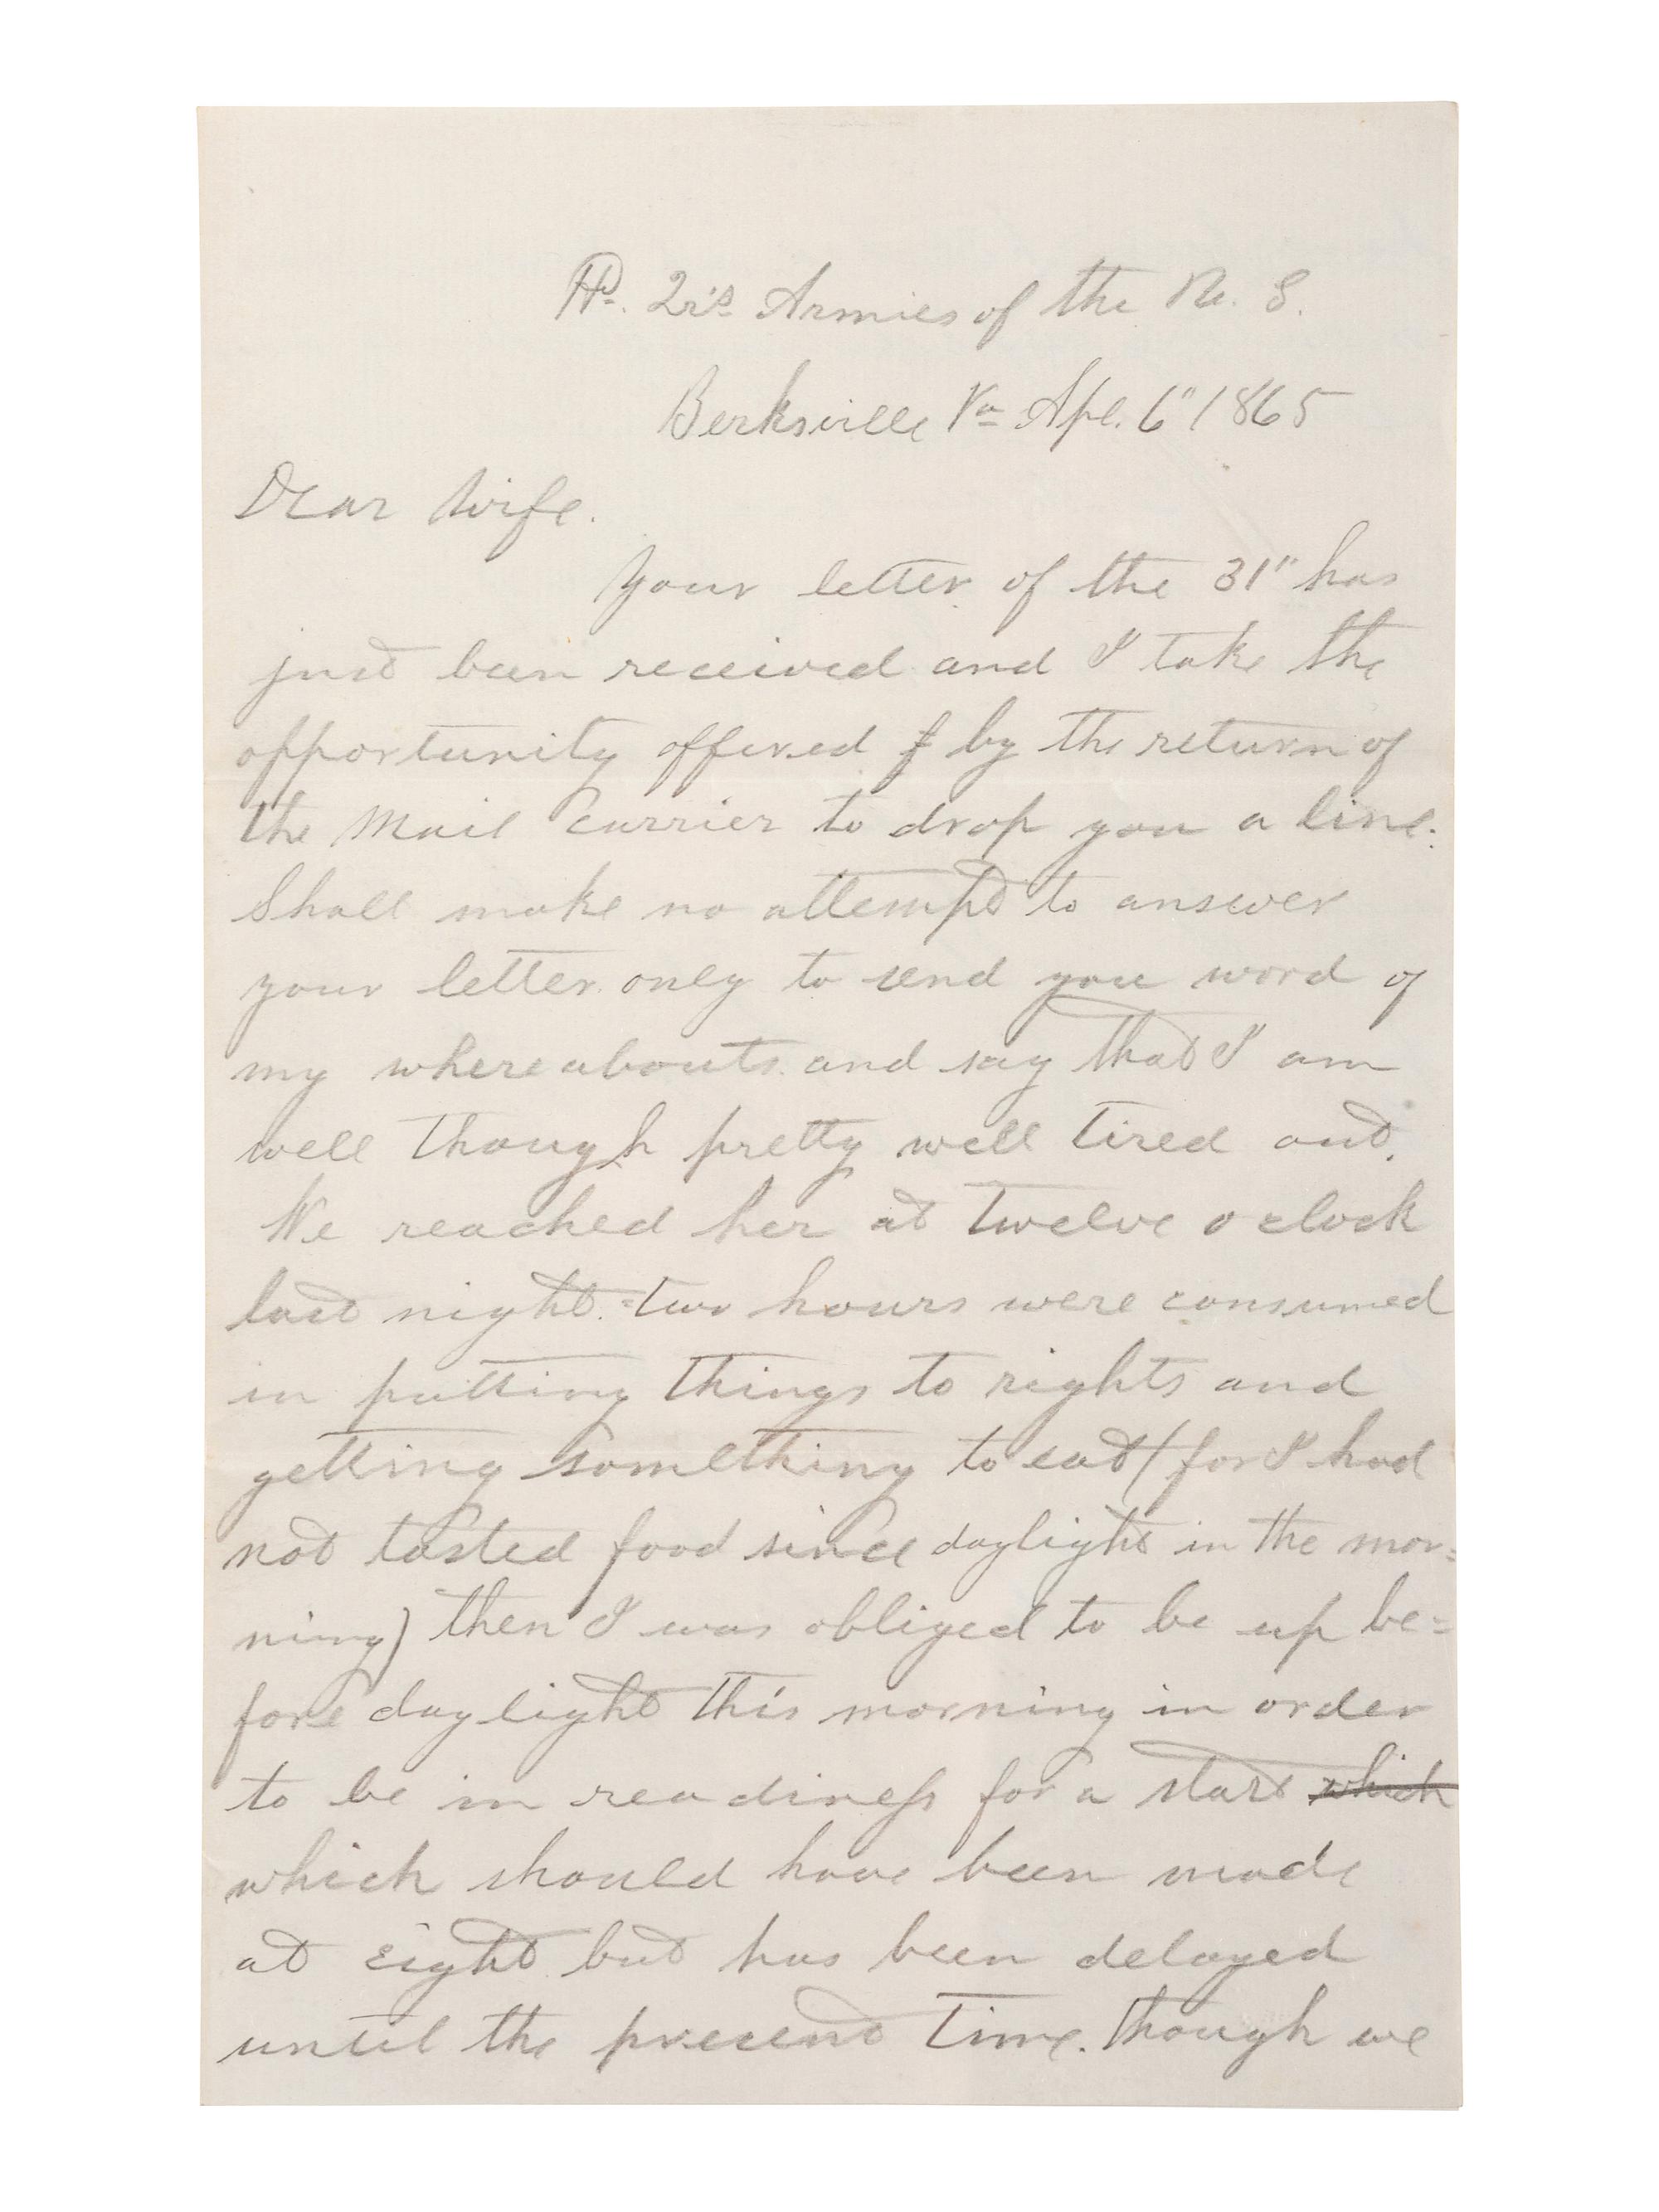 Hd. Qrs. Armies of the U. S.
Berksville Va Apl. 6" 1865
Dear Wife.
Your letter of the 31" has
just been received and I take the
opportunity offered f by the return of
the Mail Carrier to drop you a line.
Shall make no attempt to answer
your letter only to send you word of
my whereabouts and say that I am
well though pretty well tired out.
We reached her at twelve o clock
last night. two hours were consumed
in putting things to rights and
getting something to eat (for I had
not tasted food since daylight in the mor=
ning) then I was obliged to be up be=
fore daylight this morning in order
to be in readiness for a start which
which should have been made
at eight but has been delayed
until the present time. though we